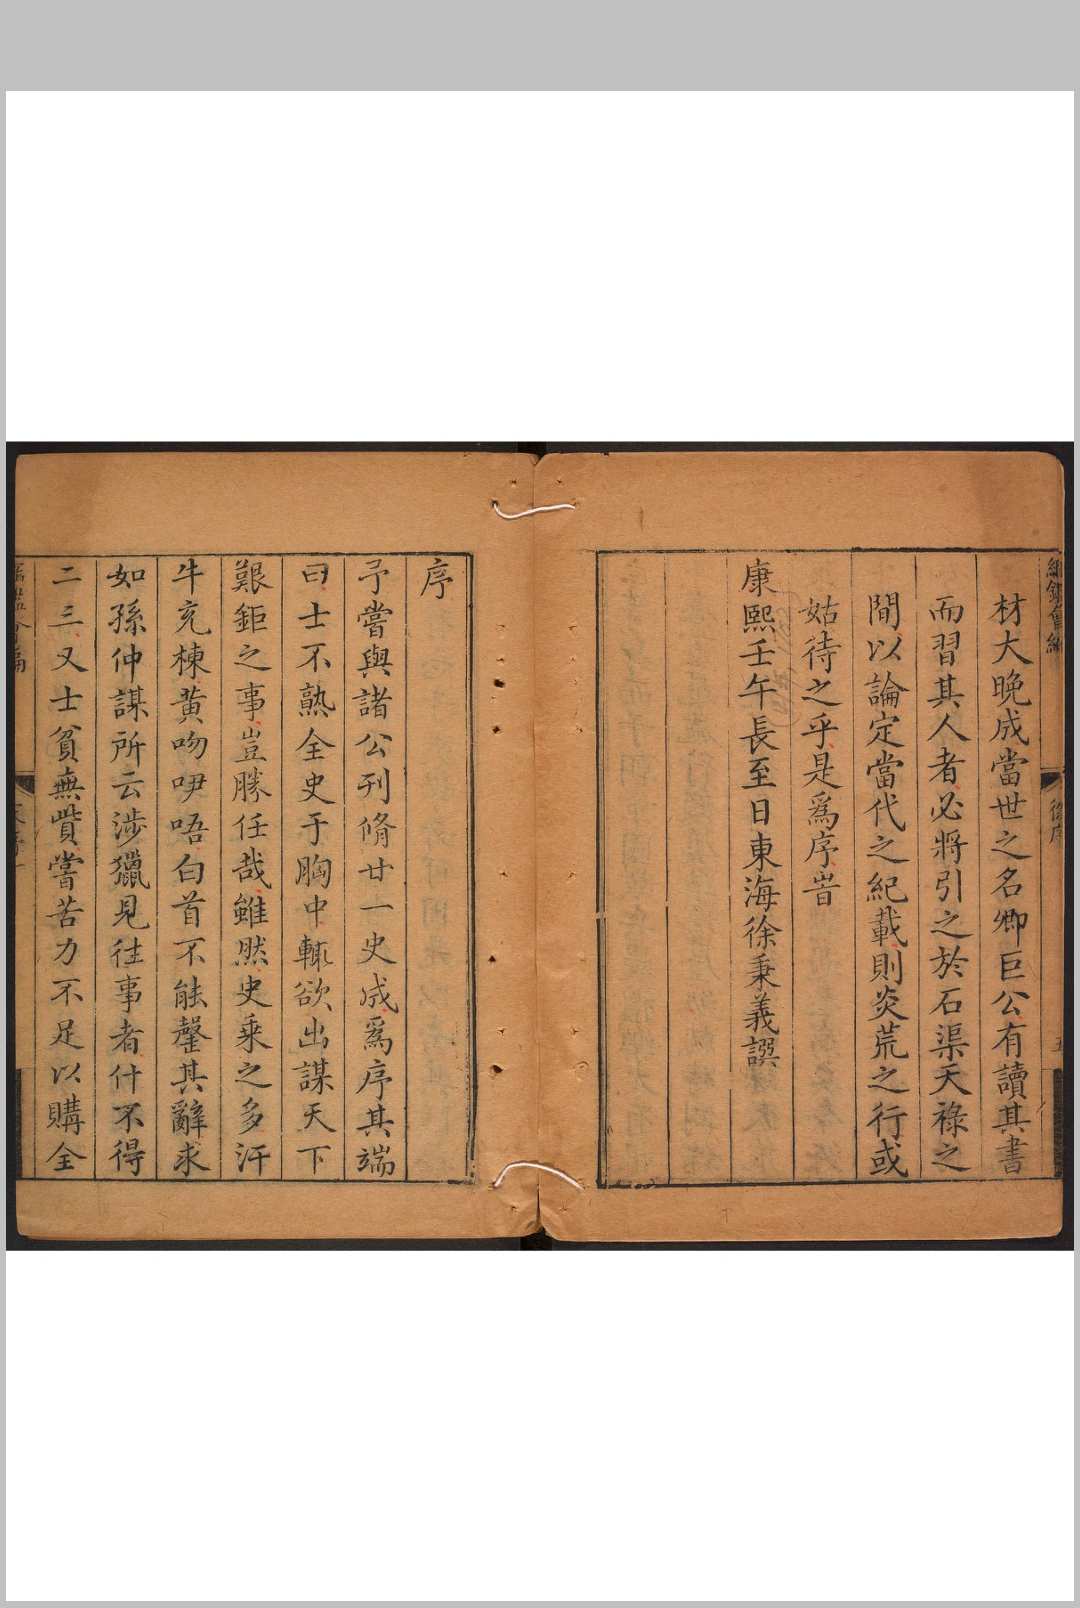 材大晚成當世之名卿巨公有讀其書
而習其人者必將引之於石渠天祿之
間以論定當代之紀載則炎荒之行或
姑待之乎是爲序旹
康熙壬午長至日東海徐秉義譔
徐序
五
序
予嘗與諸公刊脩廿一史成爲序其端
曰士不熟全史于胸中輒欲出謀天下
艱鉅之事豈勝任哉雖然史乘之多汗
牛充棟黄吻咿唔白首不能罄其辭求
如孫仲謀所云涉獵見往事者什不得
二三又士貧無貲嘗苦力不足以購全